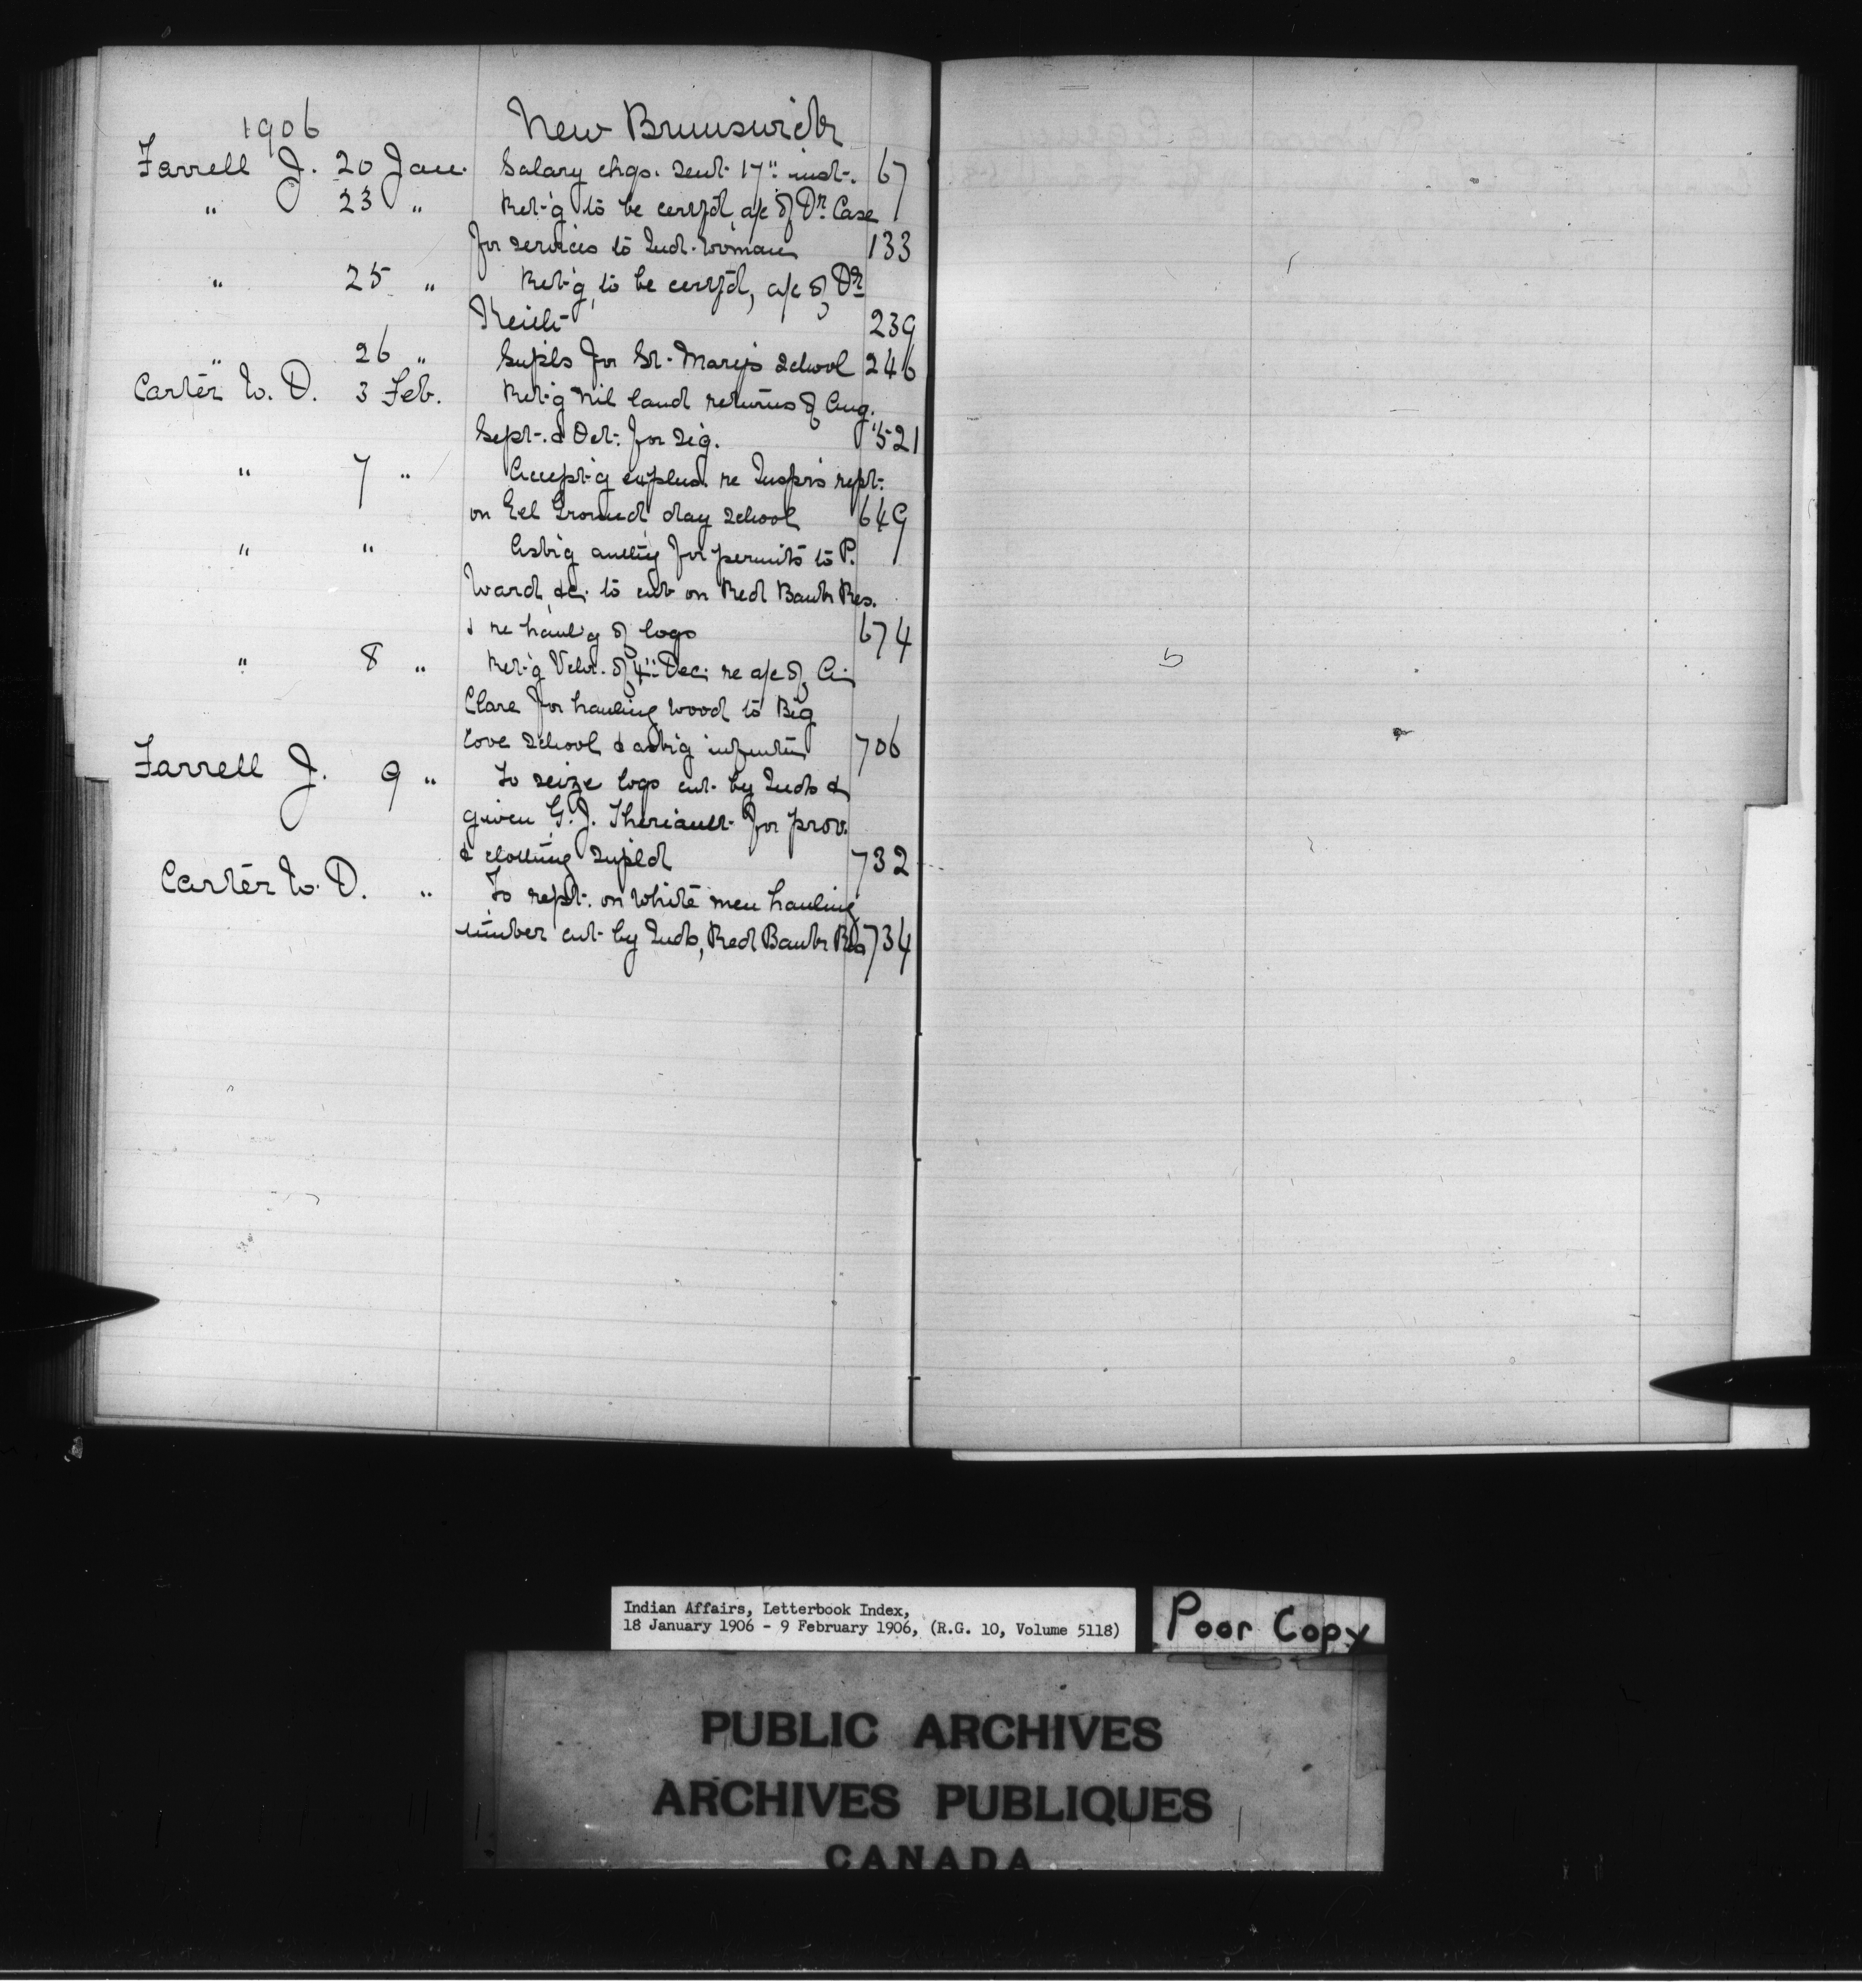 1906 New Brunswick
Farrell J. 20 Jan. Salary chqs. sent 17" inst. 67
" 23 " Ret'g to be certf'd, a/c of Dr. Case
for services to Ind. woman 133
" 25 " Ret'g, to be certf'd, a/c of Dr
Keith 239
" 26 " Supl's for St. Mary's School 246
Carter W. D. 3 Feb. Ret'g nil land returns of Aug.
Sept. & Oct. for sig. 521
" 7 " Accept'g explan. re Insp'rs rept.
on Eel Ground day school 649
" " Ask'g for permits to P.
Ward &c. to cut on Red Bank Res.
& re haul'g of logs 674
" 8 " Ret'g Vchr. of 4" Dec. re a/c of A.
Clare for hauling wood to Big
Cove School & ask'g 706
Farrell J. 9 " To seize logs cut by Inds &
given G. J. Theriault for prov.
& clothing supl'd 732
Carter W. D. " To rept. on white men hauling
timber cut by Inds, Red Bank Res 734
Indian Affairs, Letterbook Index,
18 January 1906 - 9 February 1906, (R.G. 10, Volume 5118)
Poor Copy
PUBLIC ARCHIVES
ARCHIVES PUBLIQUES
CANADA